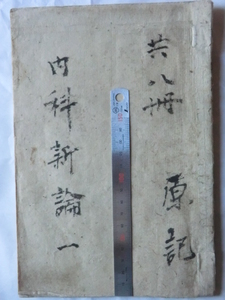 共八冊
原記
内科新論一